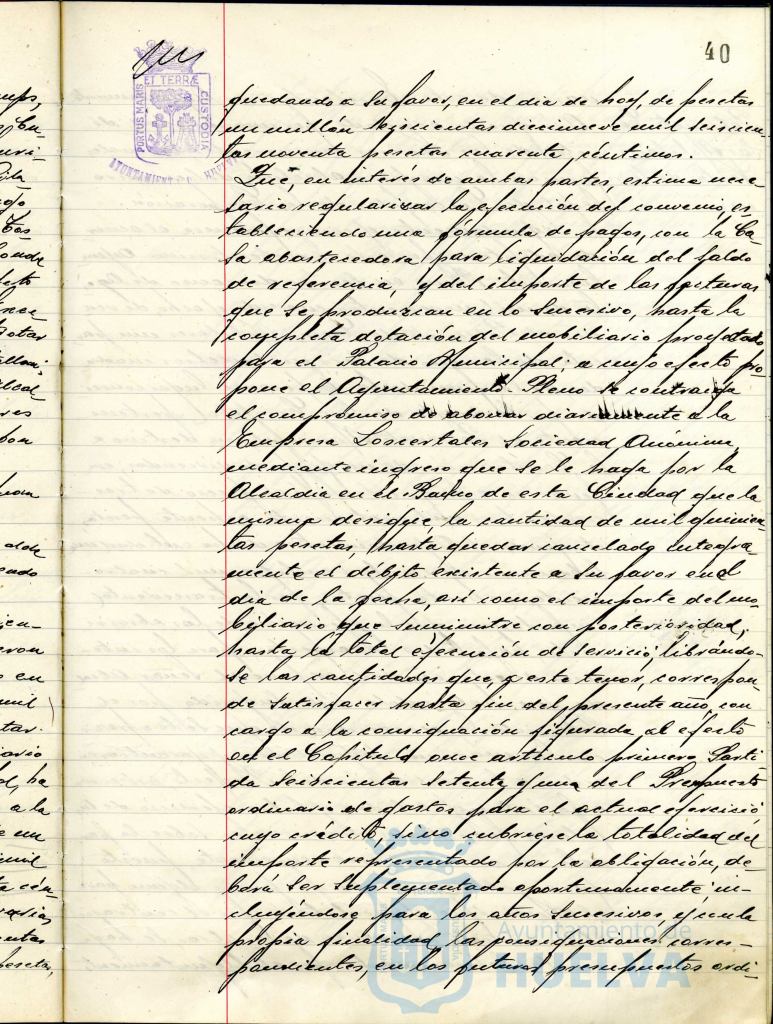 40
PORTUS MARIS ET TERRÆ CUSTODIA
AYUNTAMIENTO
quedando a su favor, en el dia de hoy, de pesetas
un millón seiscientas diecinueve mil seiscien-
tas noventa pesetas cuarenta céntimos.
Que, en interés de ambas partes, estima nece-
sario regularizar la ejecución del convenio, es-
tableciendo una fórmula de pagos, con la Ca-
sa abastecedora para liquidación del saldo
de referencia, y del importe de las facturas
que se produzcan en lo sucesivo, hasta la
completa dotación del mobiliario proyectado
para el Palacio Municipal; a cuyo efecto pro-
pone el Ayuntamiento-Pleno se contraiga
el compromiso de abonar diariamente a la
Empresa Loscertales Sociedad Anónima,
mediante ingreso que se le haga por la
Alcaldia en el Banco de esta Ciudad que la
misma designe, la cantidad de mil quinien-
tas pesetas, hasta quedar cancelado integra-
mente el débito existente a su favor en el
dia de la fecha, así como el importe del mo-
biliario que suministre con posterioridad,
hasta la total ejecución de servicio, librándo-
se las cantidades que, a este tenor, correspon-
de satisfacer hasta fin del presente año, con
cargo a la consignación figurada al efecto
en el Capitulo once artículo primero Parti-
da seiscientas setenta y una del Presupuesto
ordinario de gastos para el actual ejercicio
cuyo crédito, si no cubriese la totalidad del
importe representado por la obligación, de-
berá ser suplementado oportunamente in-
cluyéndose para los años sucesivos, y con la
propia finalidad, las consignaciones corres-
pondientes, en los futuros presupuestos ordi-
Ayuntamiento de
HUELVA